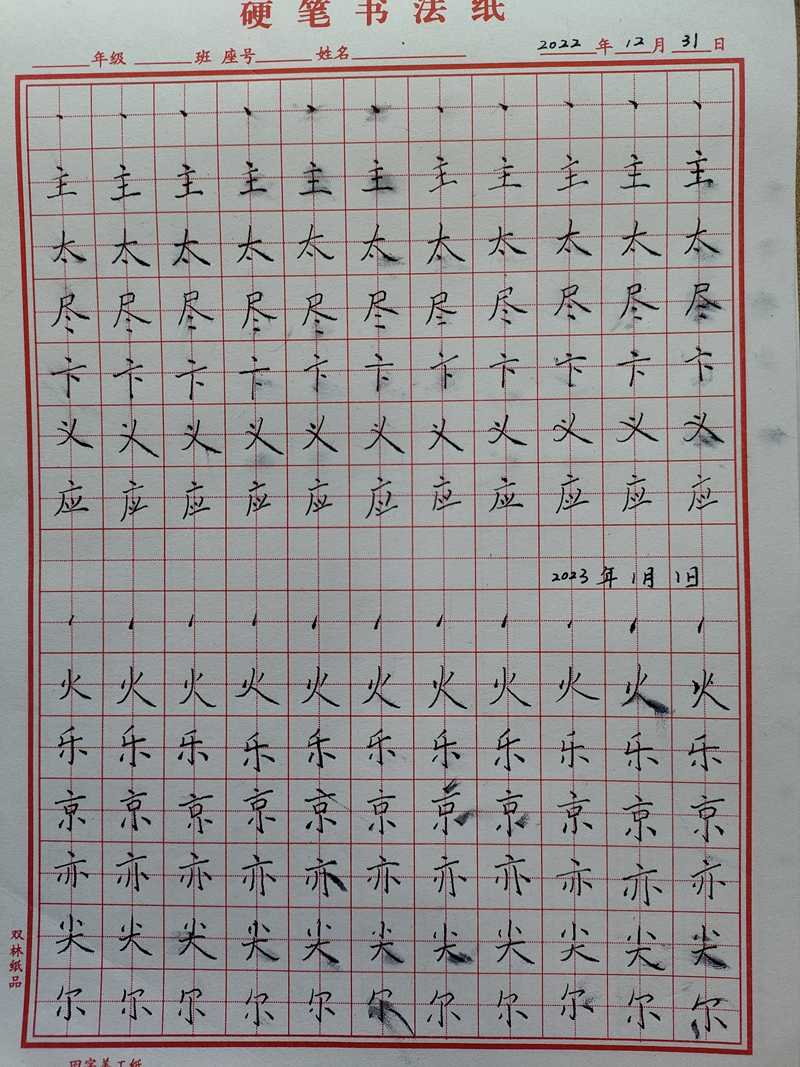 硬笔书法纸
年级 班 座号 姓名 2022 年 12 月 31 日
丶 丶 丶 丶 丶 丶 丶 丶 丶 丶 丶
主 主 主 主 主 主 主 主 主 主 主
太 太 太 太 太 太 太 太 太 太 太
尽 尽 尽 尽 尽 尽 尽 尽 尽 尽 尽
卞 卞 卞 卞 卞 卞 卞 卞 卞 卞 卞
义 义 义 义 义 义 义 义 义 义 义
应 应 应 应 应 应 应 应 应 应 应
2023 年 1月 1日
火 火 火 火 火 火 火 火 火 火 火
乐 乐 乐 乐 乐 乐 乐 乐 乐 乐 乐
京 京 京 京 京 京 京 京 京 京 京
亦 亦 亦 亦 亦 亦 亦 亦 亦 亦 亦
尖 尖 尖 尖 尖 尖 尖 尖 尖 尖 尖
尔 尔 尔 尔 尔 尔 尔 尔 尔 尔 尔
双林纸品